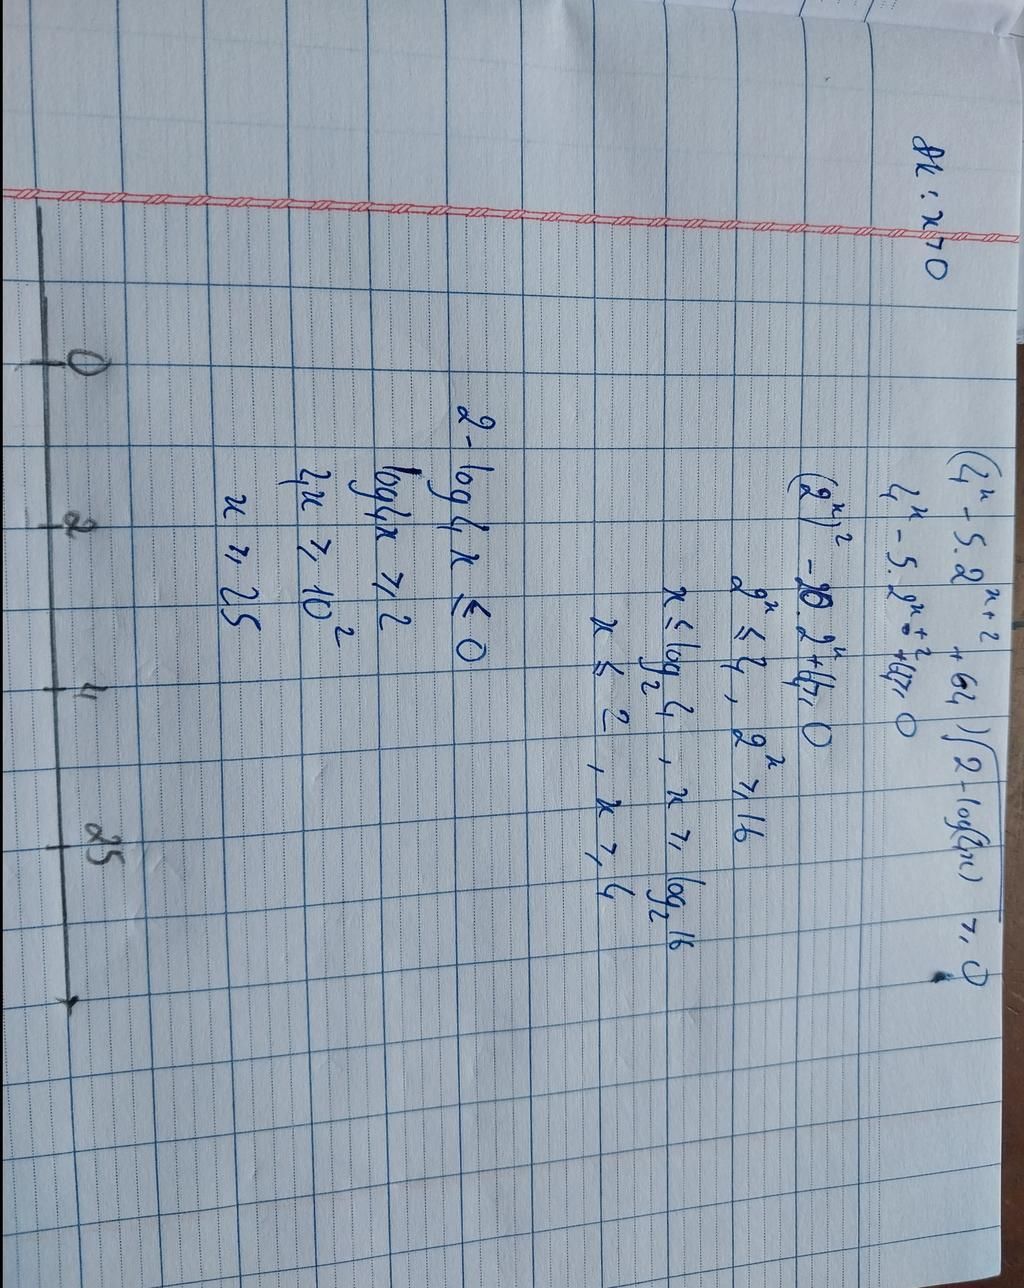 (4^x - 5.2^{x+2} + 64)√(2 - log(4x)) ⩾ 0
đk: x > 0
4^x - 5.2^{x+2} + 64 ⩾ 0
(2^x)^2 - 20.2^x + 64 ⩾ 0
2^x ≤ 4, 2^x ⩾ 16
x ≤ log_2 4, x ⩾ log_2 16
x ≤ 2, x ⩾ 4
2 - log4x ≤ 0
log4x ⩾ 2
4x ⩾ 10^2
x ⩾ 25
0 2 4 25